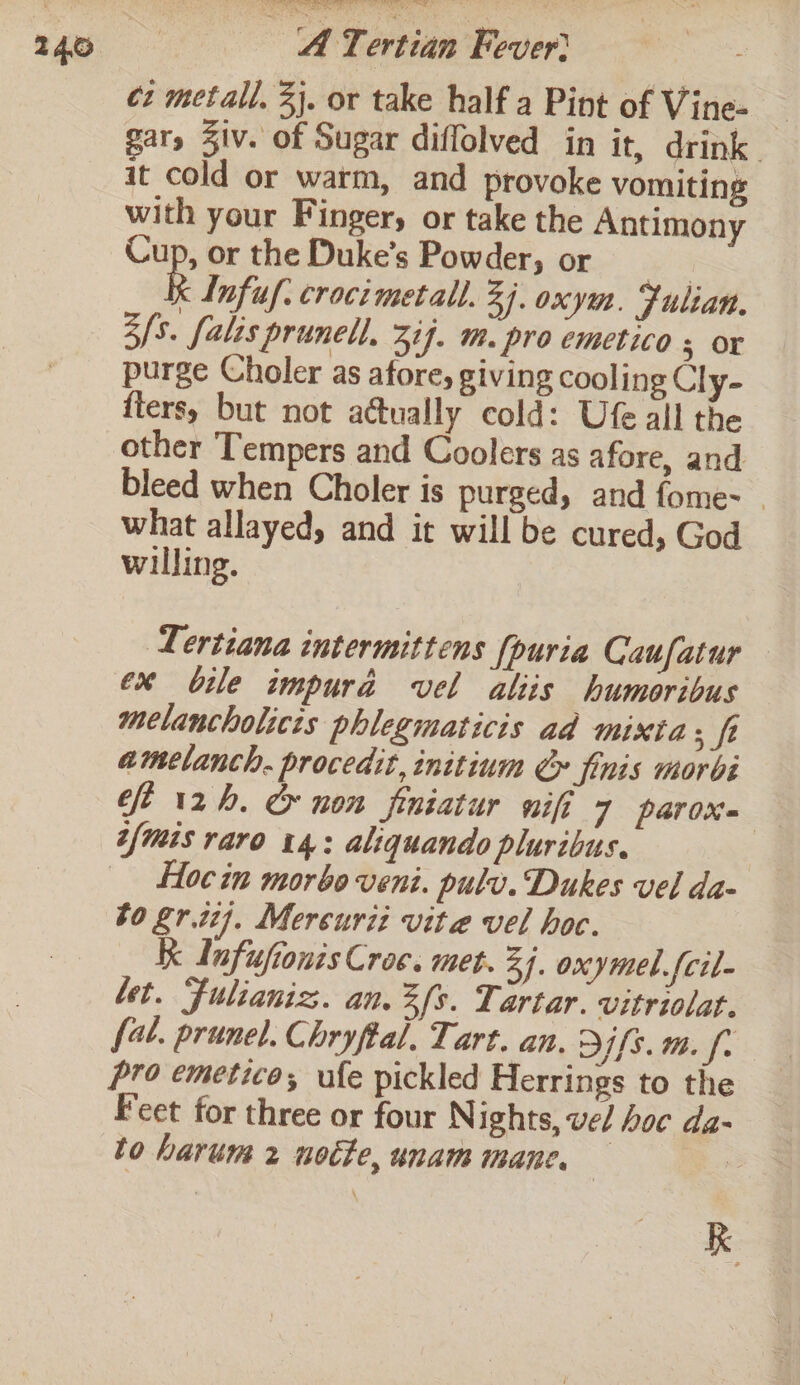 240 A Tertian Fever.
ci metall. ℥j. or take half a Pint of Vine-
gar, ℥iv. of Sugar diſſolved in it, drink
it cold or warm, and provoke vomiting
with your Finger, or take the Antimony
Cup, or the Duke's Powder, or
℞ Infuſ. croci metall. ℥j. oxym. Julian.
℥ſs. ſalis prunell. ʒij. m. pro emetico ; or
purge Choler as afore, giving cooling Cly-
ſters, but not actually cold: Uſe all the
other Tempers and Coolers as afore, and
bleed when Choler is purged, and ſome-
what allayed, and it will be cured, God
willing.
Tertiana intermittens ſpuria Cauſatur
ex bile impurâ vel aliis humoribus
melancholicis phlegmaticis ad mixta ; ſi
a melanch. procedit, initium & finis morbi
eſt 12 h. & non finiatur niſi 7 parox-
iſmis raro 14 : aliquando pluribus.
Hoc in morbo veni. pulv. Dukes vel da-
to gr.iij. Mercurii vitæ vel hoc.
℞ Infuſionis Croc. met. ℥j. oxymel.ſcil-
let. Julianiz. an. ℥ſs. Tartar. vitriolat.
ſal. prunel. Chryſtal. Tart. an. ℈jſs. m. f.
pro emetico ; uſe pickled Herrings to the
Feet for three or four Nights, vel hoc da-
to harum 2 nocte, unam mane.
℞